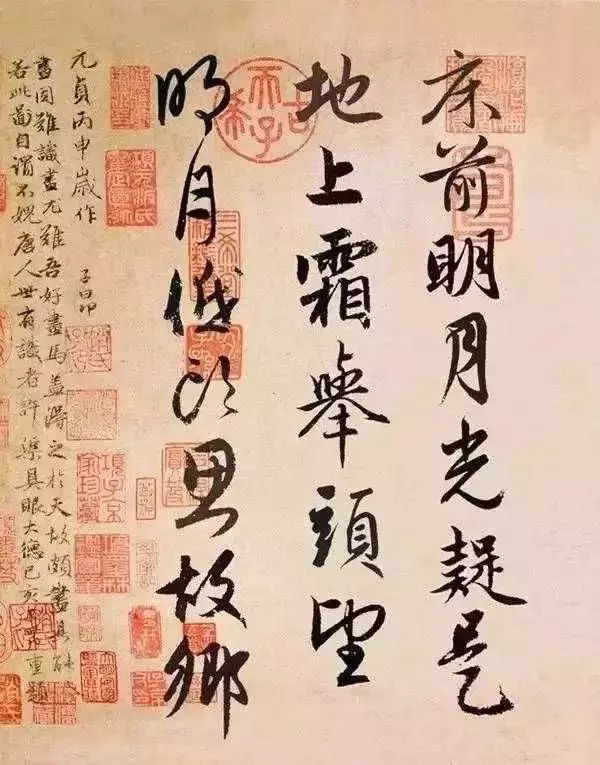 床前明月光疑是
地上霜舉頭望
明月低頭思故鄉
古希天子
元貞丙申歲作
子昂
畫固難識畫尤難吾好畫馬蓋得之於天故頗盡其能
若此圖自謂不愧唐人世有識者許渠具眼大德己亥重題
項子京家珍藏